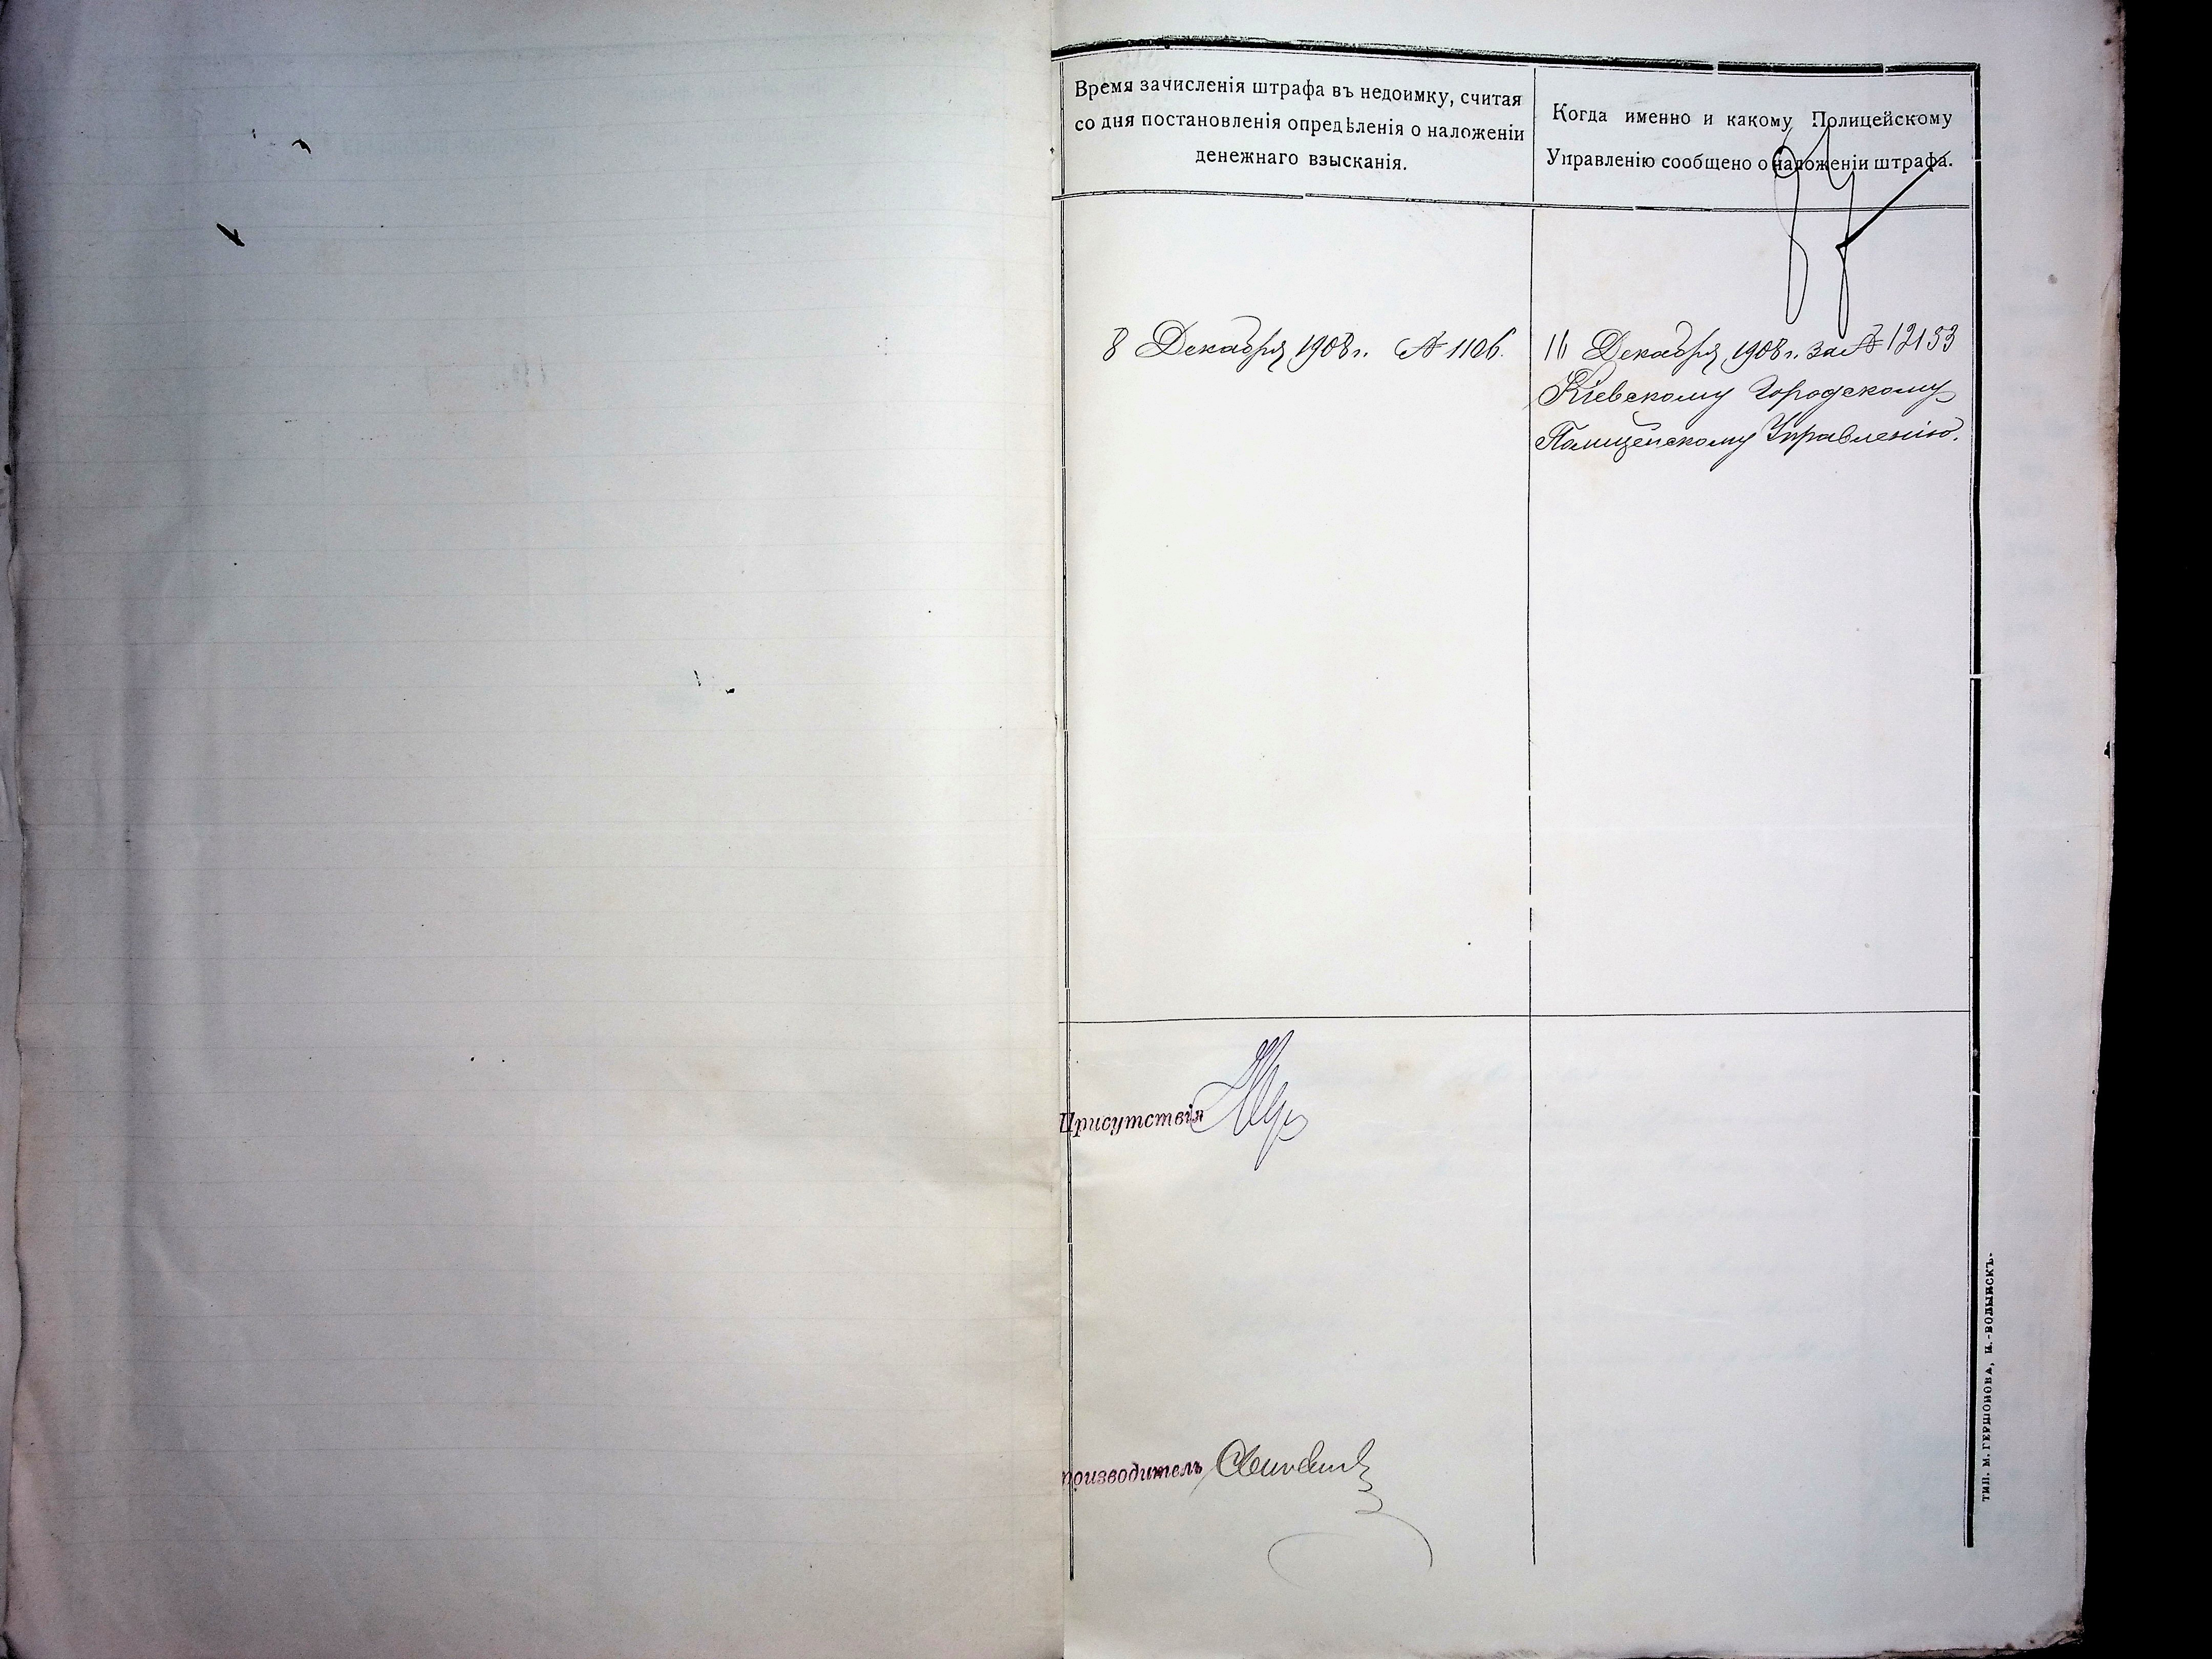 Время зачисленія штрафа въ недоимку, считая
со дня постановленія опредѣленія о наложеніи
денежнаго взысканія.
Когда именно и какому Полицейскому
Управленію сообщено о наложеніи штрафа.
8 Декабря 1908 г. № 1106.
16 Декабря 1908 г. за № 12153
Кіевскому Городскому
Полицейскому Управленію.
Присутствія
производитель
ТИП. М. ГЕРШОНОВА, Н.-ВОЛЫНСКЪ.